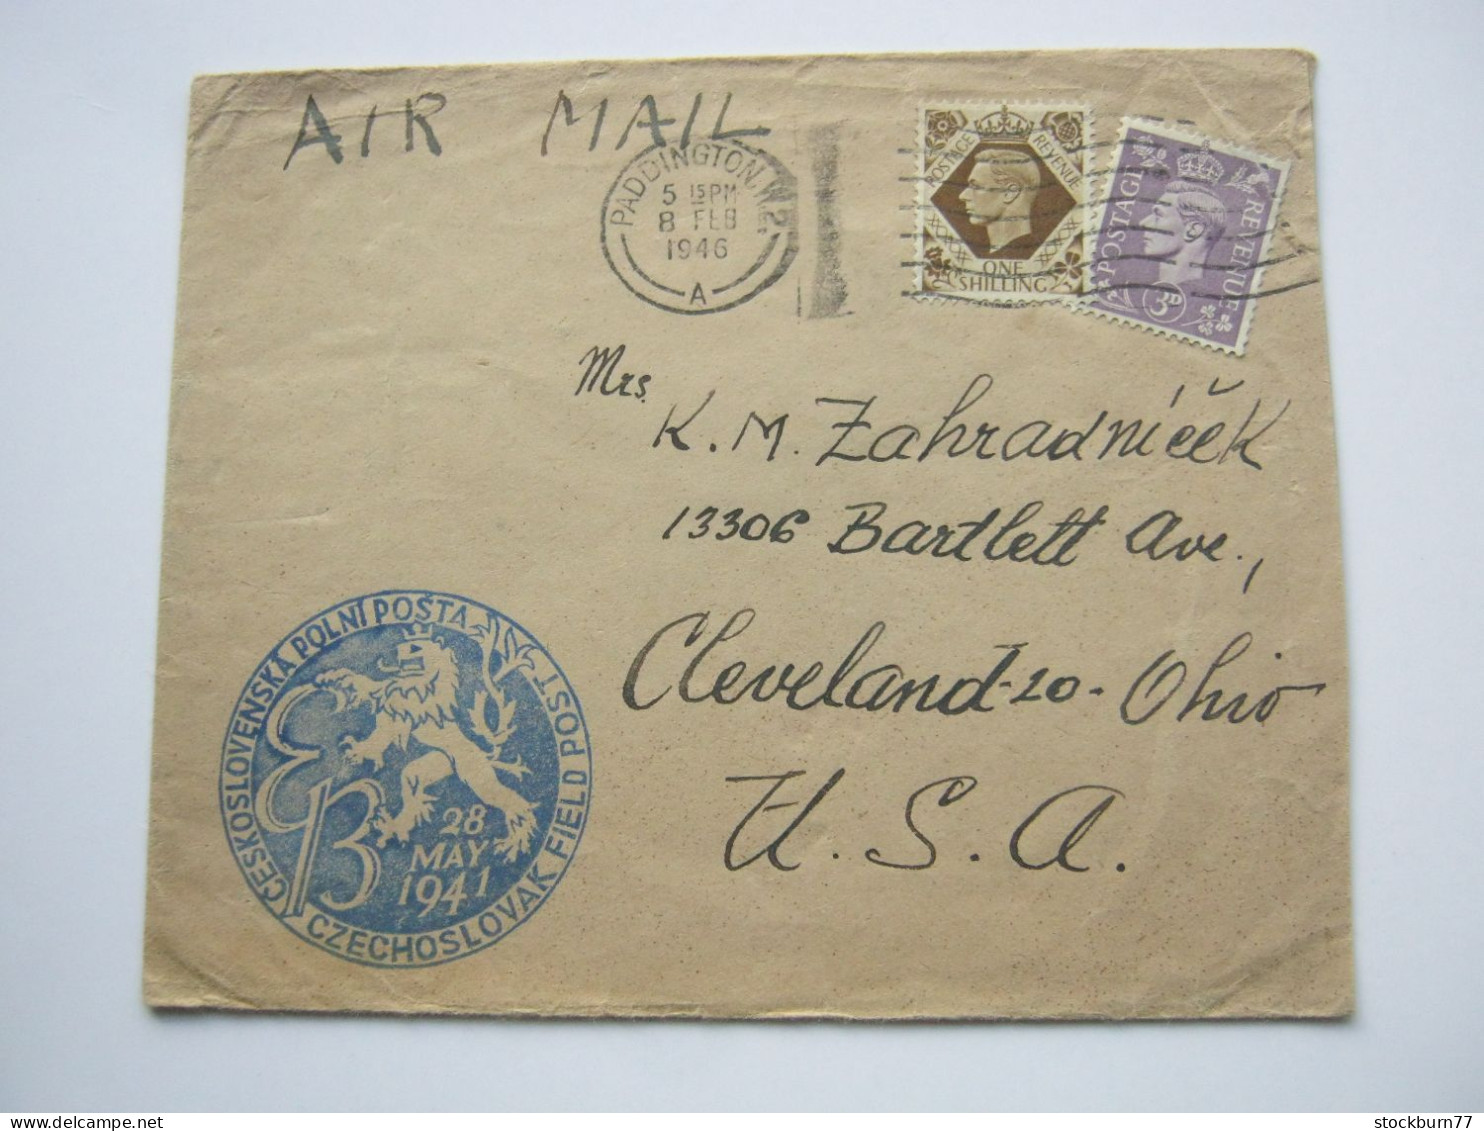 AIR MAIL
PADDINGTON. W.2.
5 15 PM
8 FEB
1946
A
POSTAGE REVENUE
ONE
SHILLING
POSTAGE REVENUE
3D
Mrs.
K. M. Zahradníček
13306 Bartlett Ave.,
Cleveland-20- Ohio
U. S. A.
ČESKOSLOVENSKÁ POLNÍ POŠTA
CZECHOSLOVAK FIELD POST
EB
28
MAY
1941
stockburn77